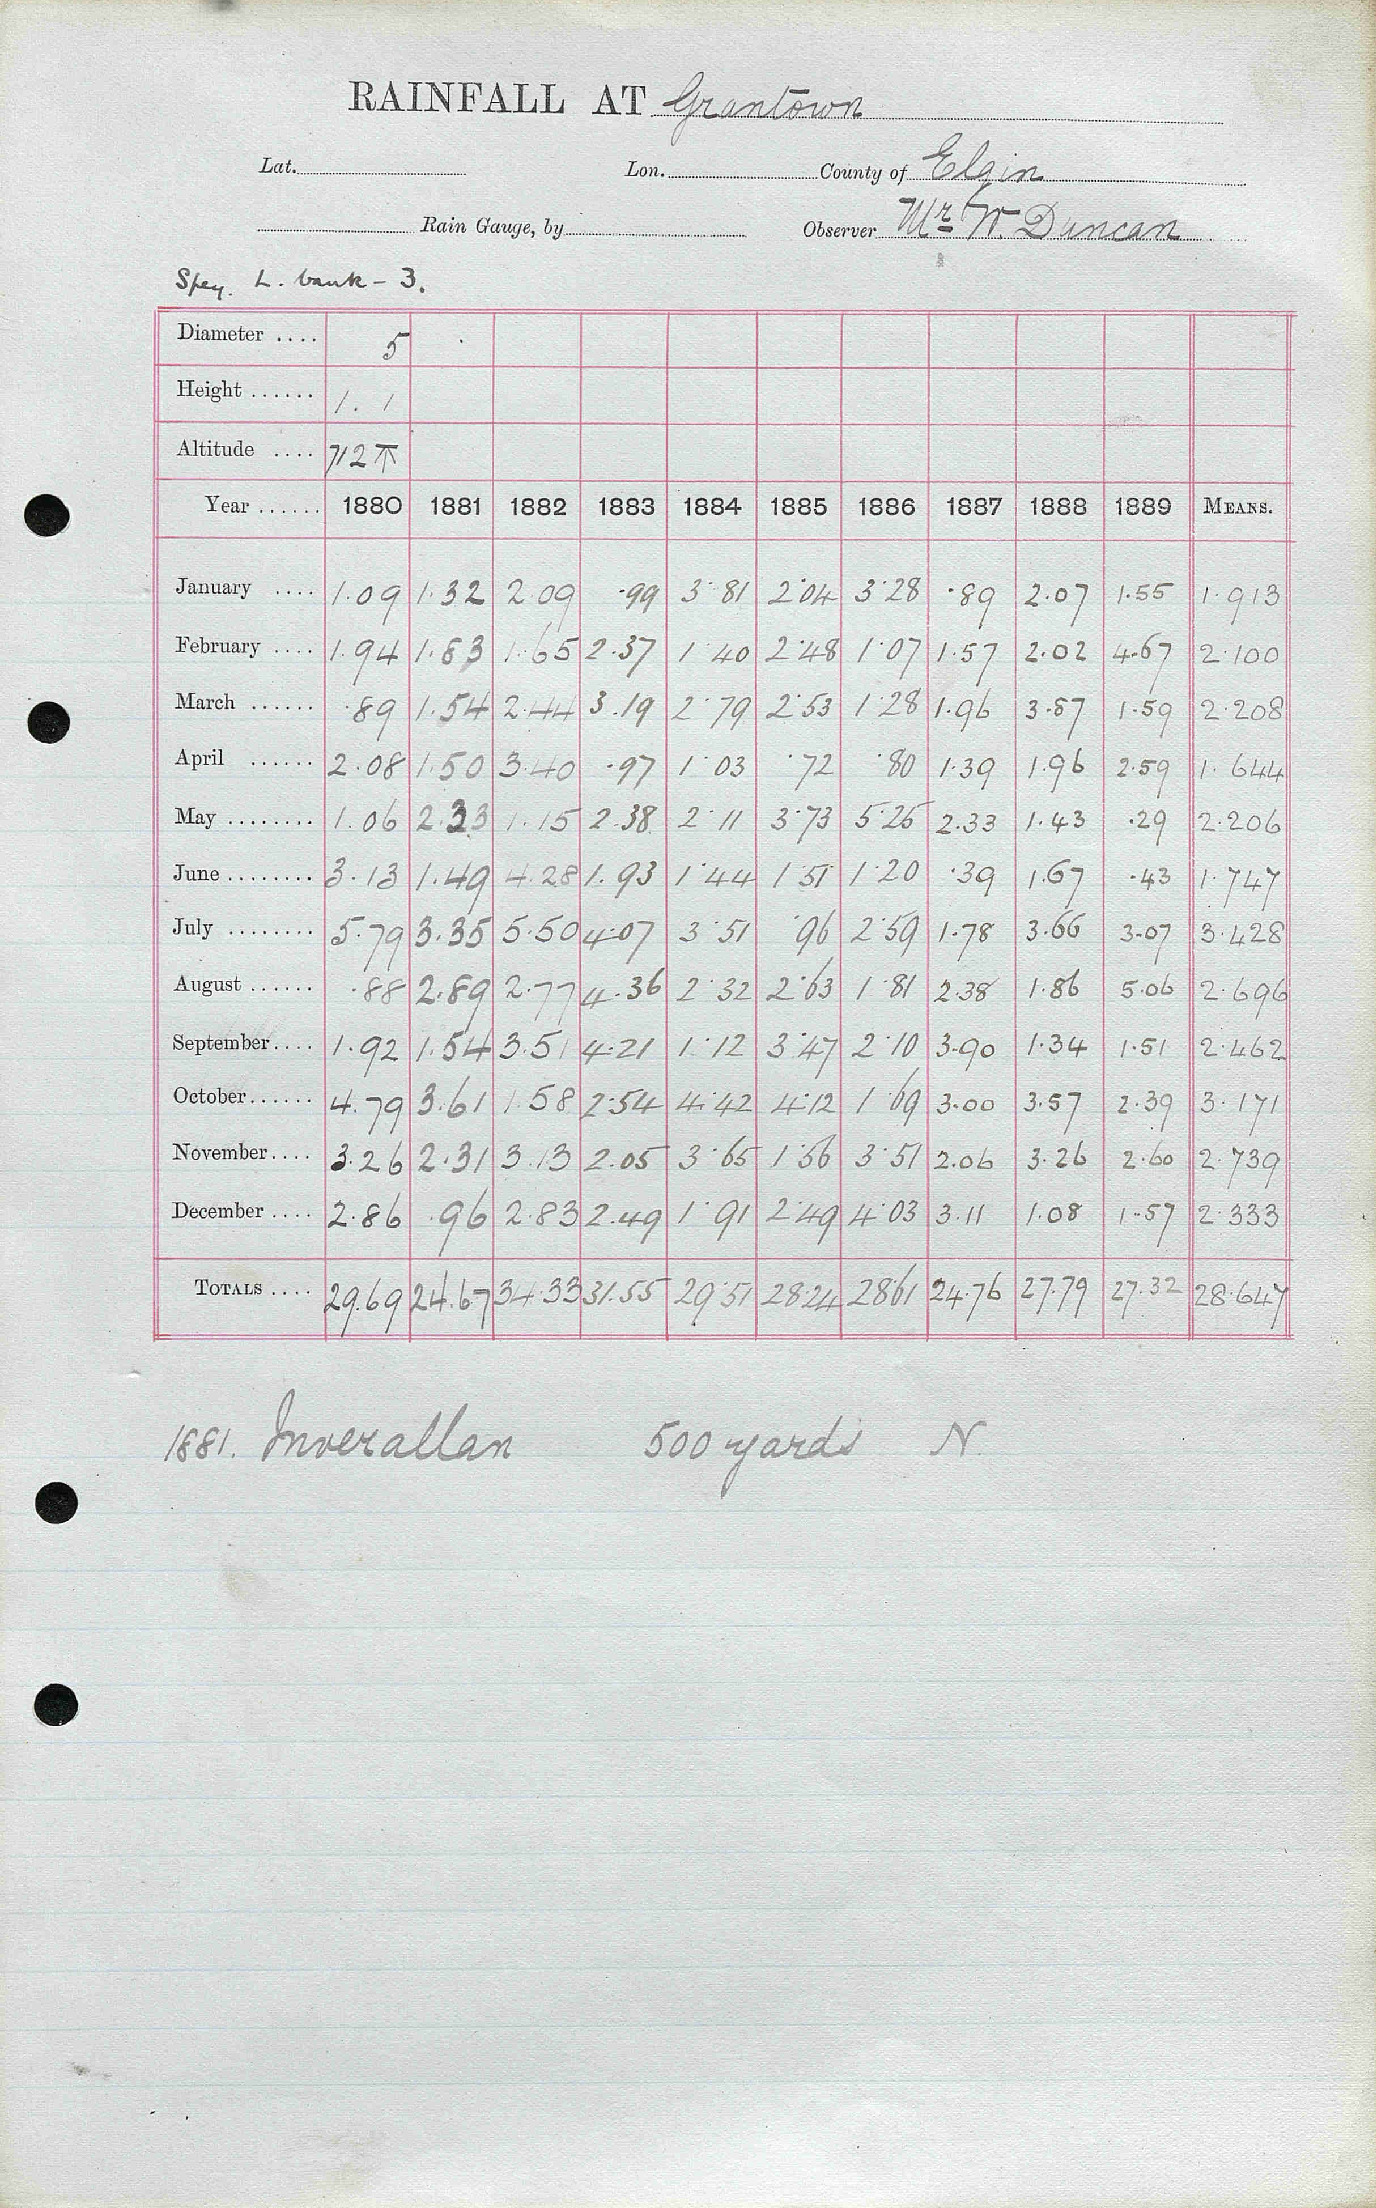 RAINFALL AT Grantown
Lat. Lon. County of Elgin
Rain Gauge, by Observer Mr W. Duncan
Spey. L. bank - 3.
Diameter .... 5
Height ...... 1. 1
Altitude .... 712
Year ...... 1880 1881 1882 1883 1884 1885 1886 1887 1888 1889 MEANS.
January .... 1.09 1.32 2.09 .99 3.81 2.04 3.28 .89 2.07 1.55 1.913
February .... 1.94 1.83 1.65 2.37 1.40 2.48 1.07 1.57 2.02 4.67 2.100
March ...... .89 1.54 2.44 3.19 2.79 2.53 1.28 1.96 3.87 1.59 2.208
April ...... 2.08 1.50 3.40 .97 1.03 .72 .80 1.39 1.96 2.59 1.644
May ........ 1.06 2.33 1.15 2.38 2.11 3.73 5.25 2.33 1.43 .29 2.206
June ........ 3.13 1.49 4.28 1.93 1.44 1.51 1.20 .39 1.67 .43 1.747
July ........ 5.79 3.35 5.50 4.07 3.51 .96 2.59 1.78 3.66 3.07 3.428
August ...... .88 2.89 2.77 4.36 2.32 2.63 1.81 2.38 1.86 5.06 2.696
September.... 1.92 1.54 3.51 4.21 1.12 3.47 2.10 3.90 1.34 1.51 2.462
October...... 4.79 3.61 1.58 2.54 4.42 4.12 1.69 3.00 3.57 2.39 3.171
November.... 3.26 2.31 3.13 2.05 3.65 1.56 3.51 2.06 3.26 2.60 2.739
December .... 2.86 .96 2.83 2.49 1.91 2.49 4.03 3.11 1.08 1.57 2.333
TOTALS .... 29.69 24.67 34.33 31.55 29.51 28.24 28.61 24.76 27.79 27.32 28.647
1881. Inverallan 500 yards N.